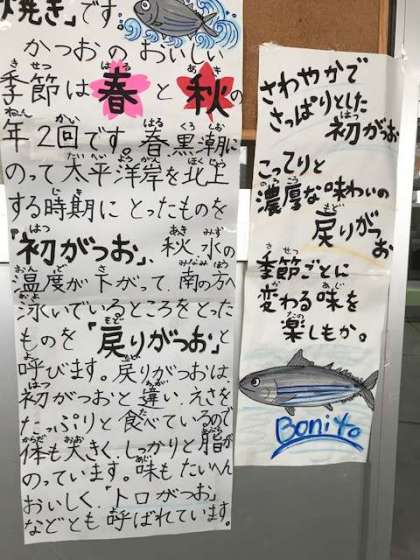 焼き」です。
かつおのおいしい
季節は春と秋の
年2回です。春黒潮に
のって太平洋岸を北上
する時期にとったものを
「初がつお」、秋水の
温度が下がって、南の方へ
泳いでいるところをとった
ものを「戻りがつお」と
呼びます。戻りがつおは、
初がつおと違い、えさを
たっぷりと食べているので
体も大きく、しっかりと脂が
のっています。味もたいへん
おいしく、「トロがつお」
などとも呼ばれています。
さわやかで
さっぱりとした
初がつお
こってりと
濃厚な味わいの
戻りがつお
季節ごとに
変わる味を
楽しもか。
Bonito